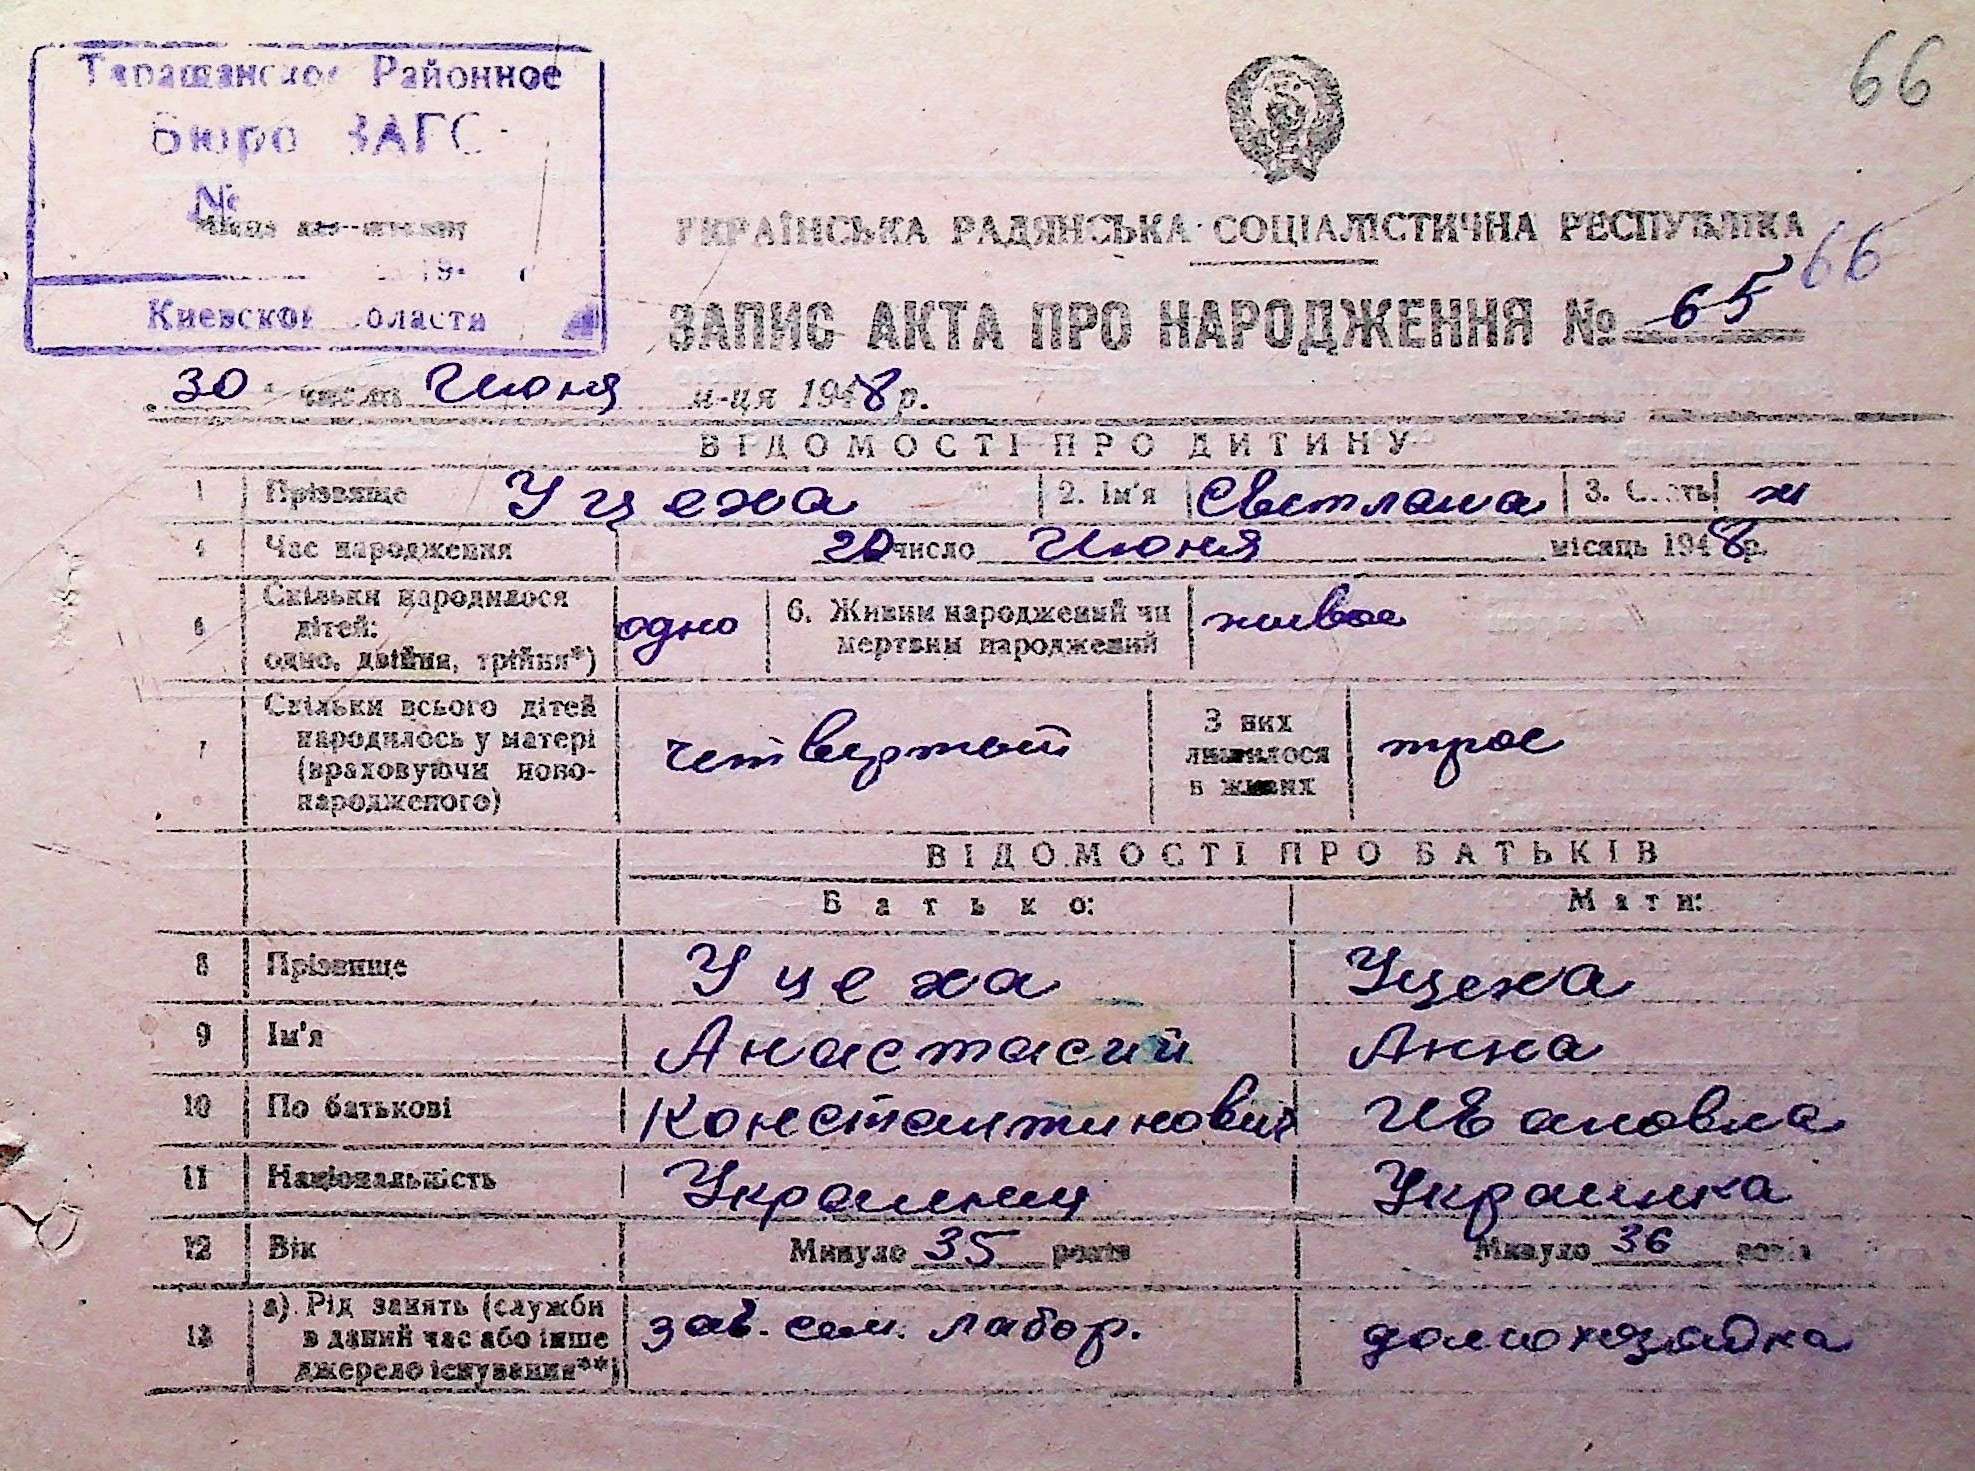 66
Таращанское Районное
Бюро ЗАГС
№
Киевской области
УКРАЇНСЬКА РАДЯНСЬКА СОЦІАЛІСТИЧНА РЕСПУБЛІКА
66
ЗАПИС АКТА ПРО НАРОДЖЕННЯ № 65
30 числа Июня м-ця 1948 р.
ВІДОМОСТІ ПРО ДИТИНУ
1 Прізвище Уцеха 2. Ім'я Светлана 3. Стать ж
4 Час народження 20 число Июня місяць 1948 р.
5 Скільки народилося дітей: одно, двійня, трійня*) одно 6. Живим народжений чи мертвим народжений живое
7 Скільки всього дітей народилось у матері (враховуючи новонародженого) четвертый З них лишилося в живих трое
ВІДОМОСТІ ПРО БАТЬКІВ
Батько: Мати:
8 Прізвище Уцеха Уцеха
9 Ім'я Анастасий Анна
10 По батькові Константинович Ивановна
11 Національність Украинец Украинка
12 Вік Минуло 35 років Минуло 36 років
13 а). Рід занять (служби в даний час або інше джерело існування**) зав. сем. лабор. домохозяйка